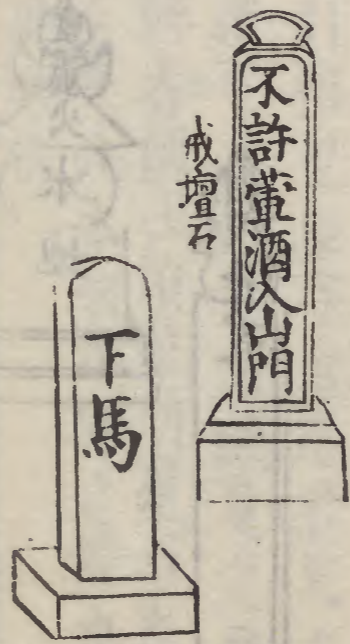 不許葷酒入山門
戒壇石
下馬